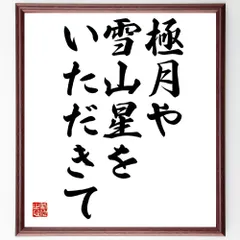 極月や
雪山星を
いただきて